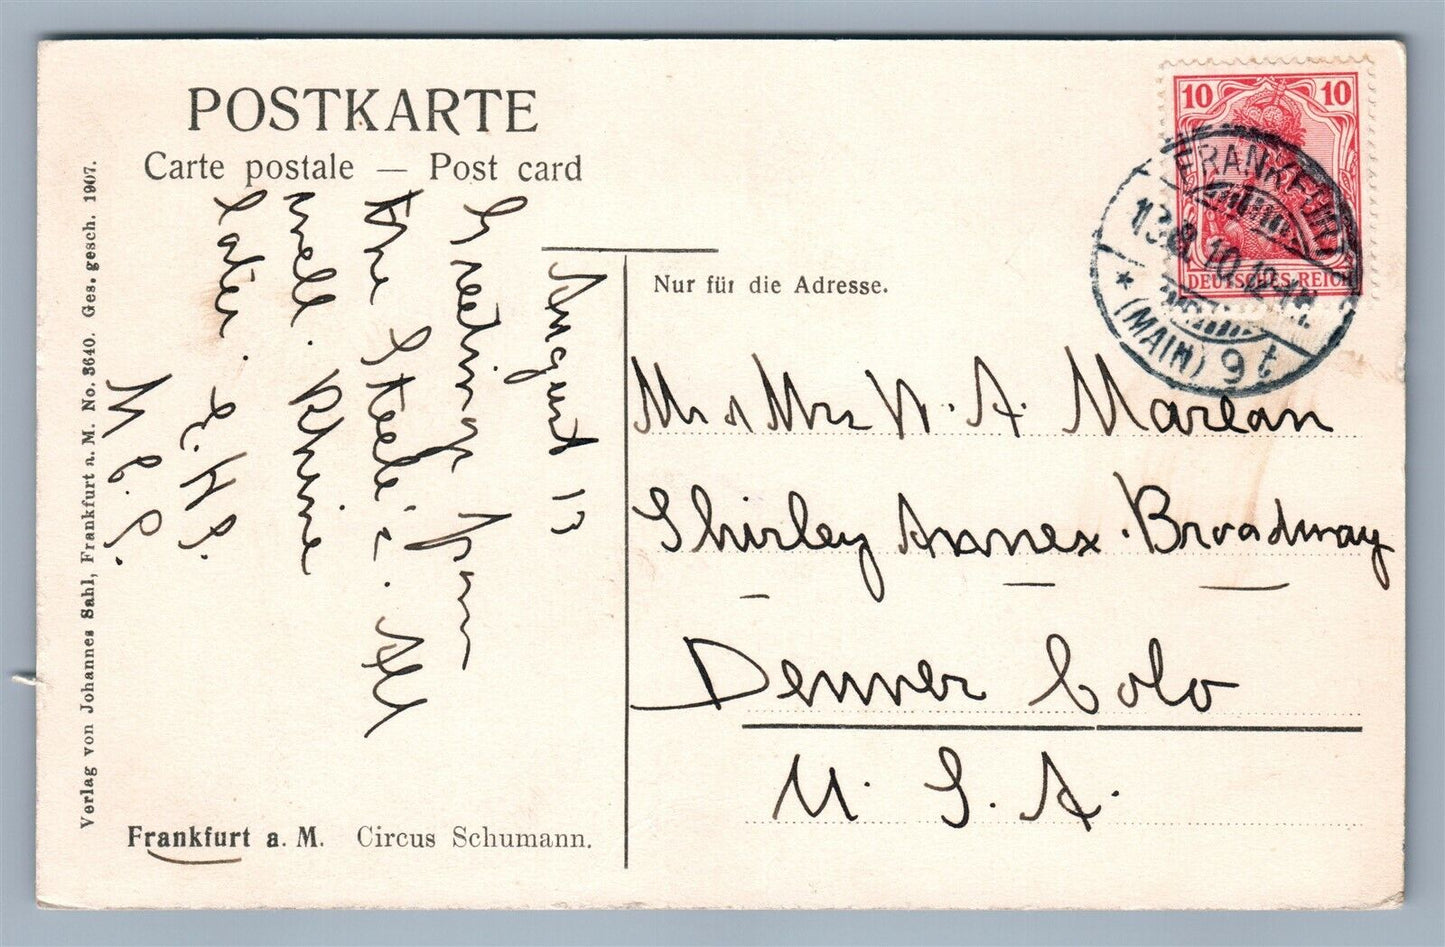 POSTKARTE
Carte postale — Post card
August 13
Greetings from
the Steele's. All
well. Rhine
later. L. H. S.
M. C. S.
Verlag von Johannes Sahl, Frankfurt a. M. No. 3640. Ges. gesch. 1907.
Frankfurt a. M. Circus Schumann.
Nur für die Adresse.
10 10
DEUTSCHES REICH
FRANKFURT
13.8.10.12-1
* (MAIN) 9t
Mr & Mrs W. A. Marean
Shirley Annex. Broadway
Denver Colo
U. S. A.